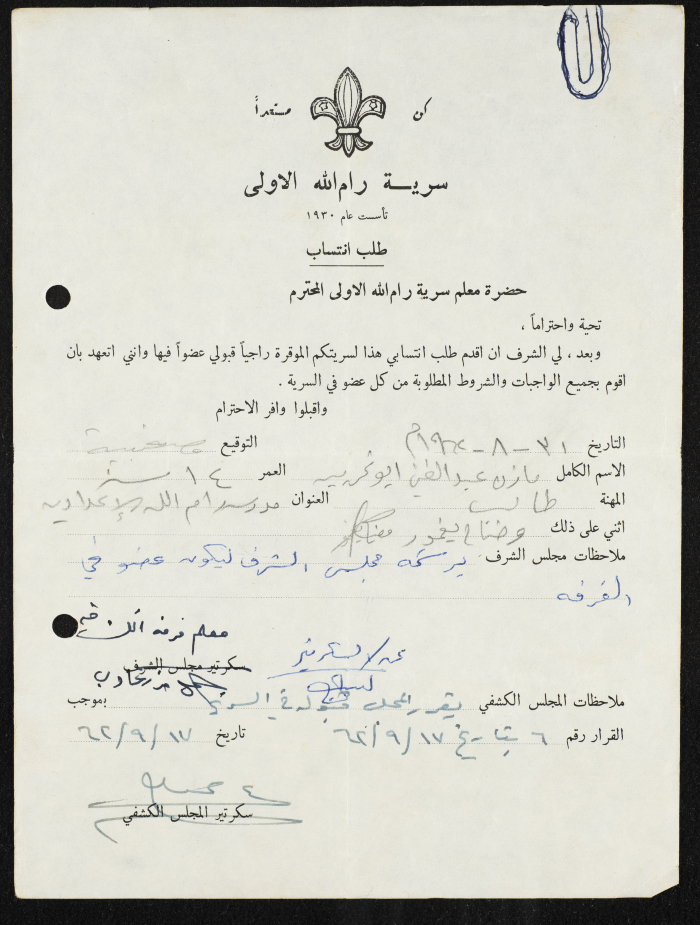 كن مستعداً
سرية رام الله الاولى
تأسست عام ١٩٣٠
طلب انتساب
حضرة معلم سرية رام الله الاولى المحترم
تحية واحتراماً ،
وبعد ، لي الشرف ان اقدم طلب انتسابي هذا لسريتكم الموقرة راجياً قبولي عضواً فيها وانني اتعهد بان
اقوم بجميع الواجبات والشروط المطلوبة من كل عضو في السرية .
واقبلوا وافر الاحترام
التاريخ ٣١ - ٨ - ١٩٦٢م التوقيع
الاسم الكامل مازن عبد الغني ابو غربيه العمر ١٤ سنة
المهنة طالب العنوان مدرسة رام الله الإعدادية
اثني على ذلك
ملاحظات مجلس الشرف يرشحه مجلس الشرف ليكون عضو في
الفرقه
معلم فرقة الكشافه
سكرتير مجلس الشرف
ملاحظات المجلس الكشفي يقرر المجلس قبوله في السرية بموجب
القرار رقم ٦ بتاريخ ١٧/٩/٦٢ تاريخ ١٧/٩/٦٢
سكرتير المجلس الكشفي